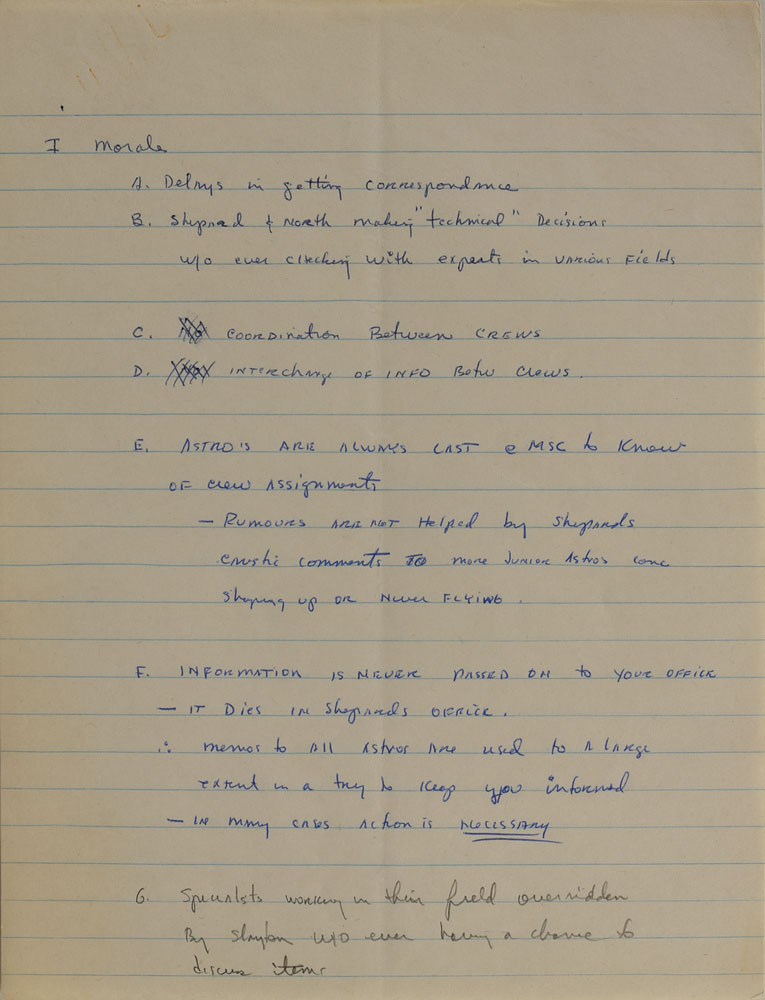 I Morale
A. Delays in getting correspondence
B. Shepard & North making "technical" Decisions
w/o ever checking with experts in various Fields
C. COORDination Between CREWS
D. INTERchange OF INFO Betw Crews.
E. ASTRO'S ARE ALWAYS LAST @ MSC to Know
OF crew Assignments
— Rumours ARE NOT Helped by Shepards
caustic comments TO more Junior Astros conc
Shaping up OR Never FLYING.
F. INFORMATION IS NEVER PASSED ON to YOUR OFFICE
— IT Dies IN Shepards OFFICE.
∴ memos to All Astros Are used to A large
extent in a try to Keep you informed
— IN many cases Action is NECESSARY
G. Specialists working in their field overridden
By Slayton w/o ever having a chance to
discuss items